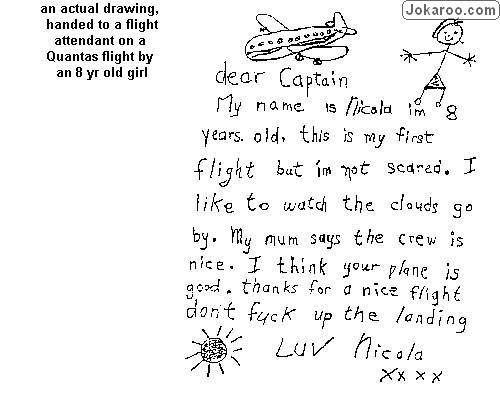 Jokaroo.com
an actual drawing,
handed to a flight
attendant on a
Quantas flight by
an 8 yr old girl
dear Captain
My name is Nicola im 8
years. old, this is my first
flight but im not scared. I
like to watch the clouds go
by. My mum says the crew is
nice. I think your plane is
good. thanks for a nice flight
don't fuck up the landing
LUV Nicola
xxxx